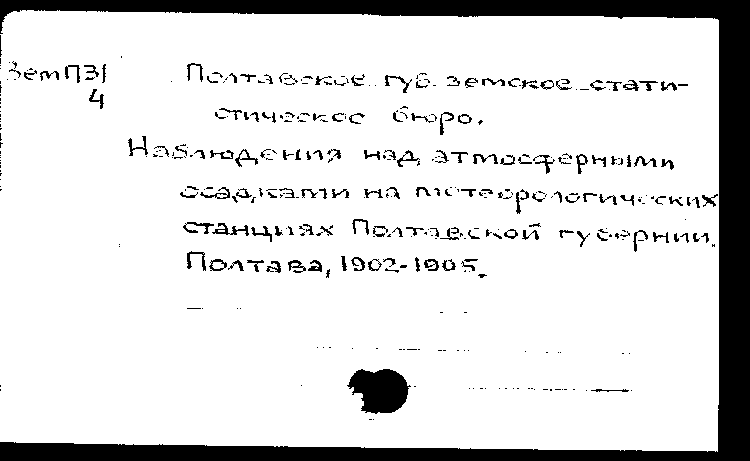 ЗемПЗ1
4
Полтавское губ. земское стати-
стическое бюро.
Наблюдения над атмосферными
осадками на метеорологических
станциях Полтавской губернии.
Полтава, 1902-1905.